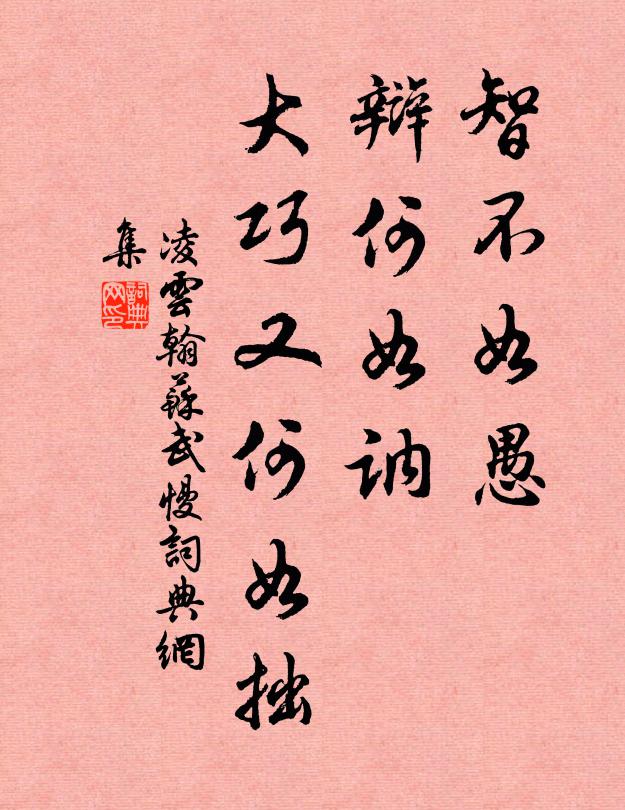 智不如愚
辯何如訥
大巧又何如拙
凌雲翰蘇武慢詞典網
集
詞典
网印